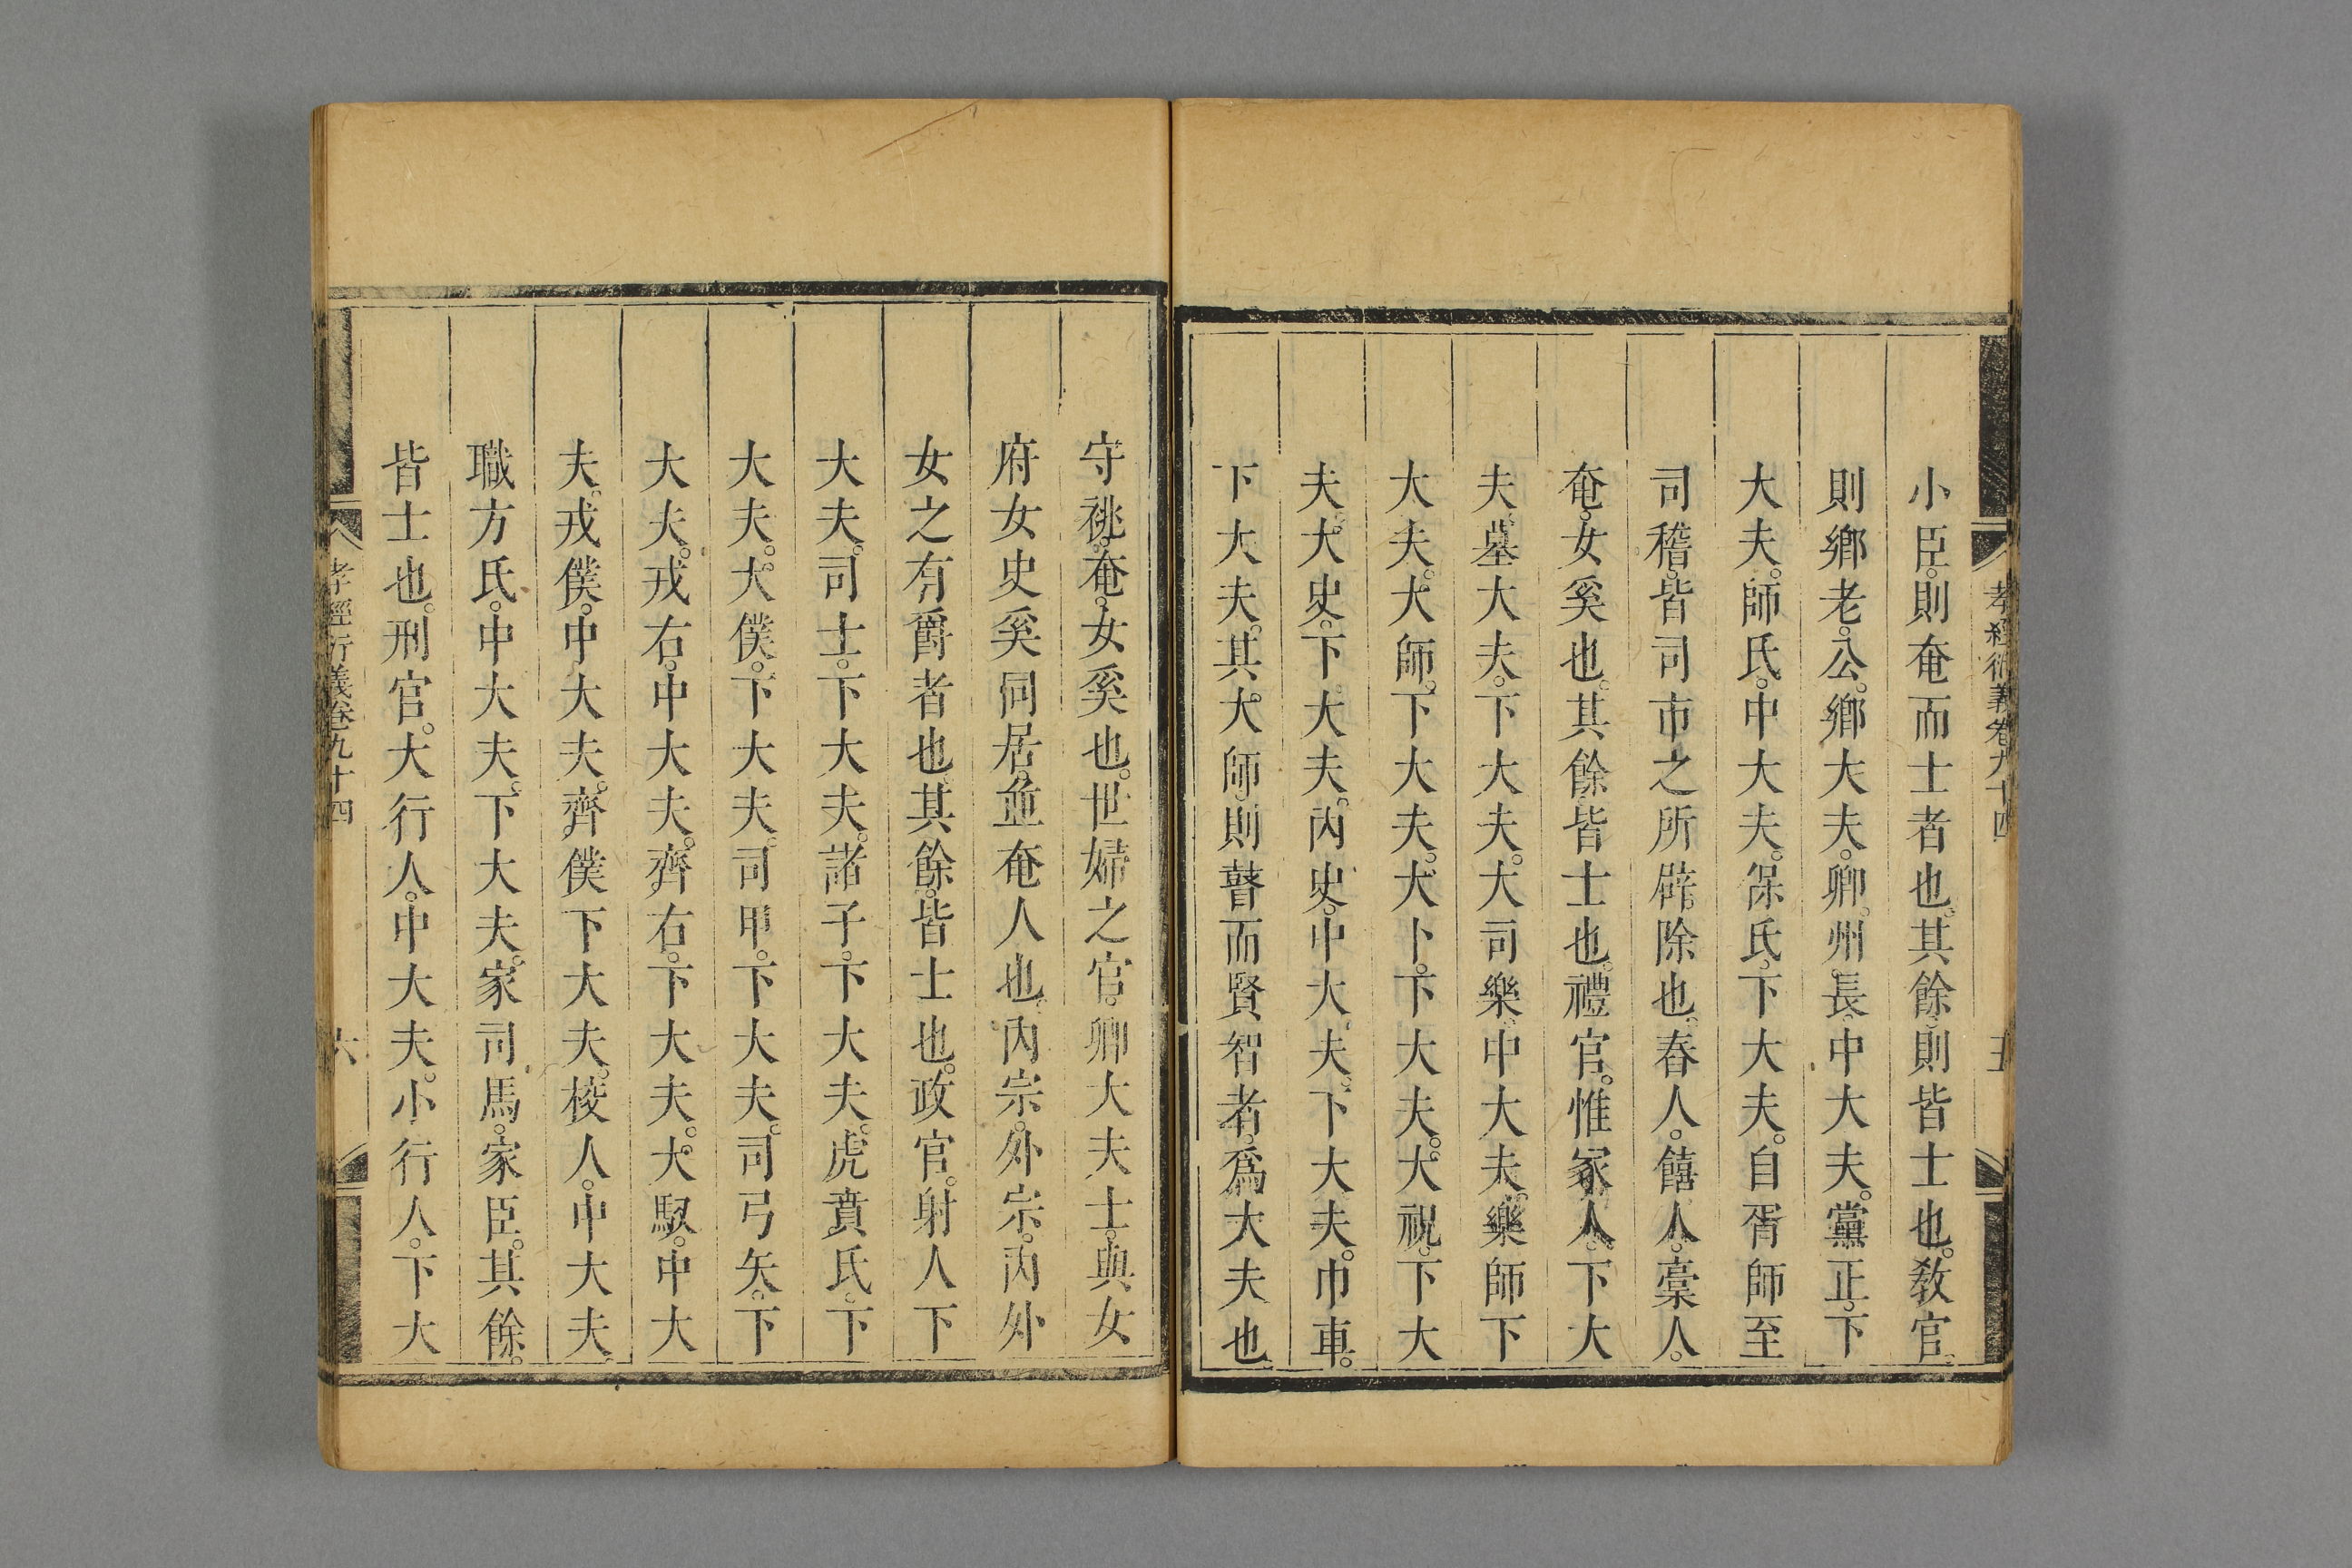 孝經衍義卷九十四
五
小臣。則奄而士者也。其餘。則皆士也。教官
則鄉老。公。鄉大夫。卿。州長。中大夫。黨正。下
大夫。師氏。中大夫。保氏。下大夫。自胥師至
司稽。皆司市之所辟除也。舂人。饎人。槀人。
奄。女奚也。其餘皆士也。禮官。惟冢人。下大
夫。墓大夫。下大夫。大司樂。中大夫。樂師下
大夫。大師。下大夫。大卜。下大夫。大祝。下大
夫。大史。下大夫。內史。中大夫。下大夫。巾車。
下大夫。其大師。則瞽而賢智者。爲大夫也
守祧。奄。女奚也。世婦之官。卿大夫士。與女
府女史奚同居。並奄人也。內宗。外宗。內外
女之有爵者也。其餘。皆士也。政官。射人下
大夫。司士。下大夫。諸子。下大夫。虎賁氏。下
大夫。大僕。下大夫。司甲。下大夫。司弓矢。下
大夫。戎右。中大夫。齊右。下大夫。大馭。中大
夫。戎僕。中大夫。齊僕下大夫。校人。中大夫。
職方氏。中大夫。下大夫。家司馬。家臣。其餘。
皆士也。刑官。大行人。中大夫。小行人。下大
孝經衍義卷九十四
六